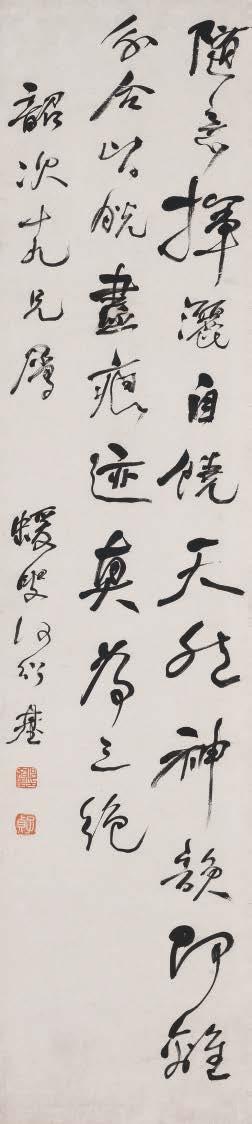 隨意揮灑自饒天然神韻即離
分合皆脫盡痕迹真為三絕
韶次大兄屬
蝯叟何紹基